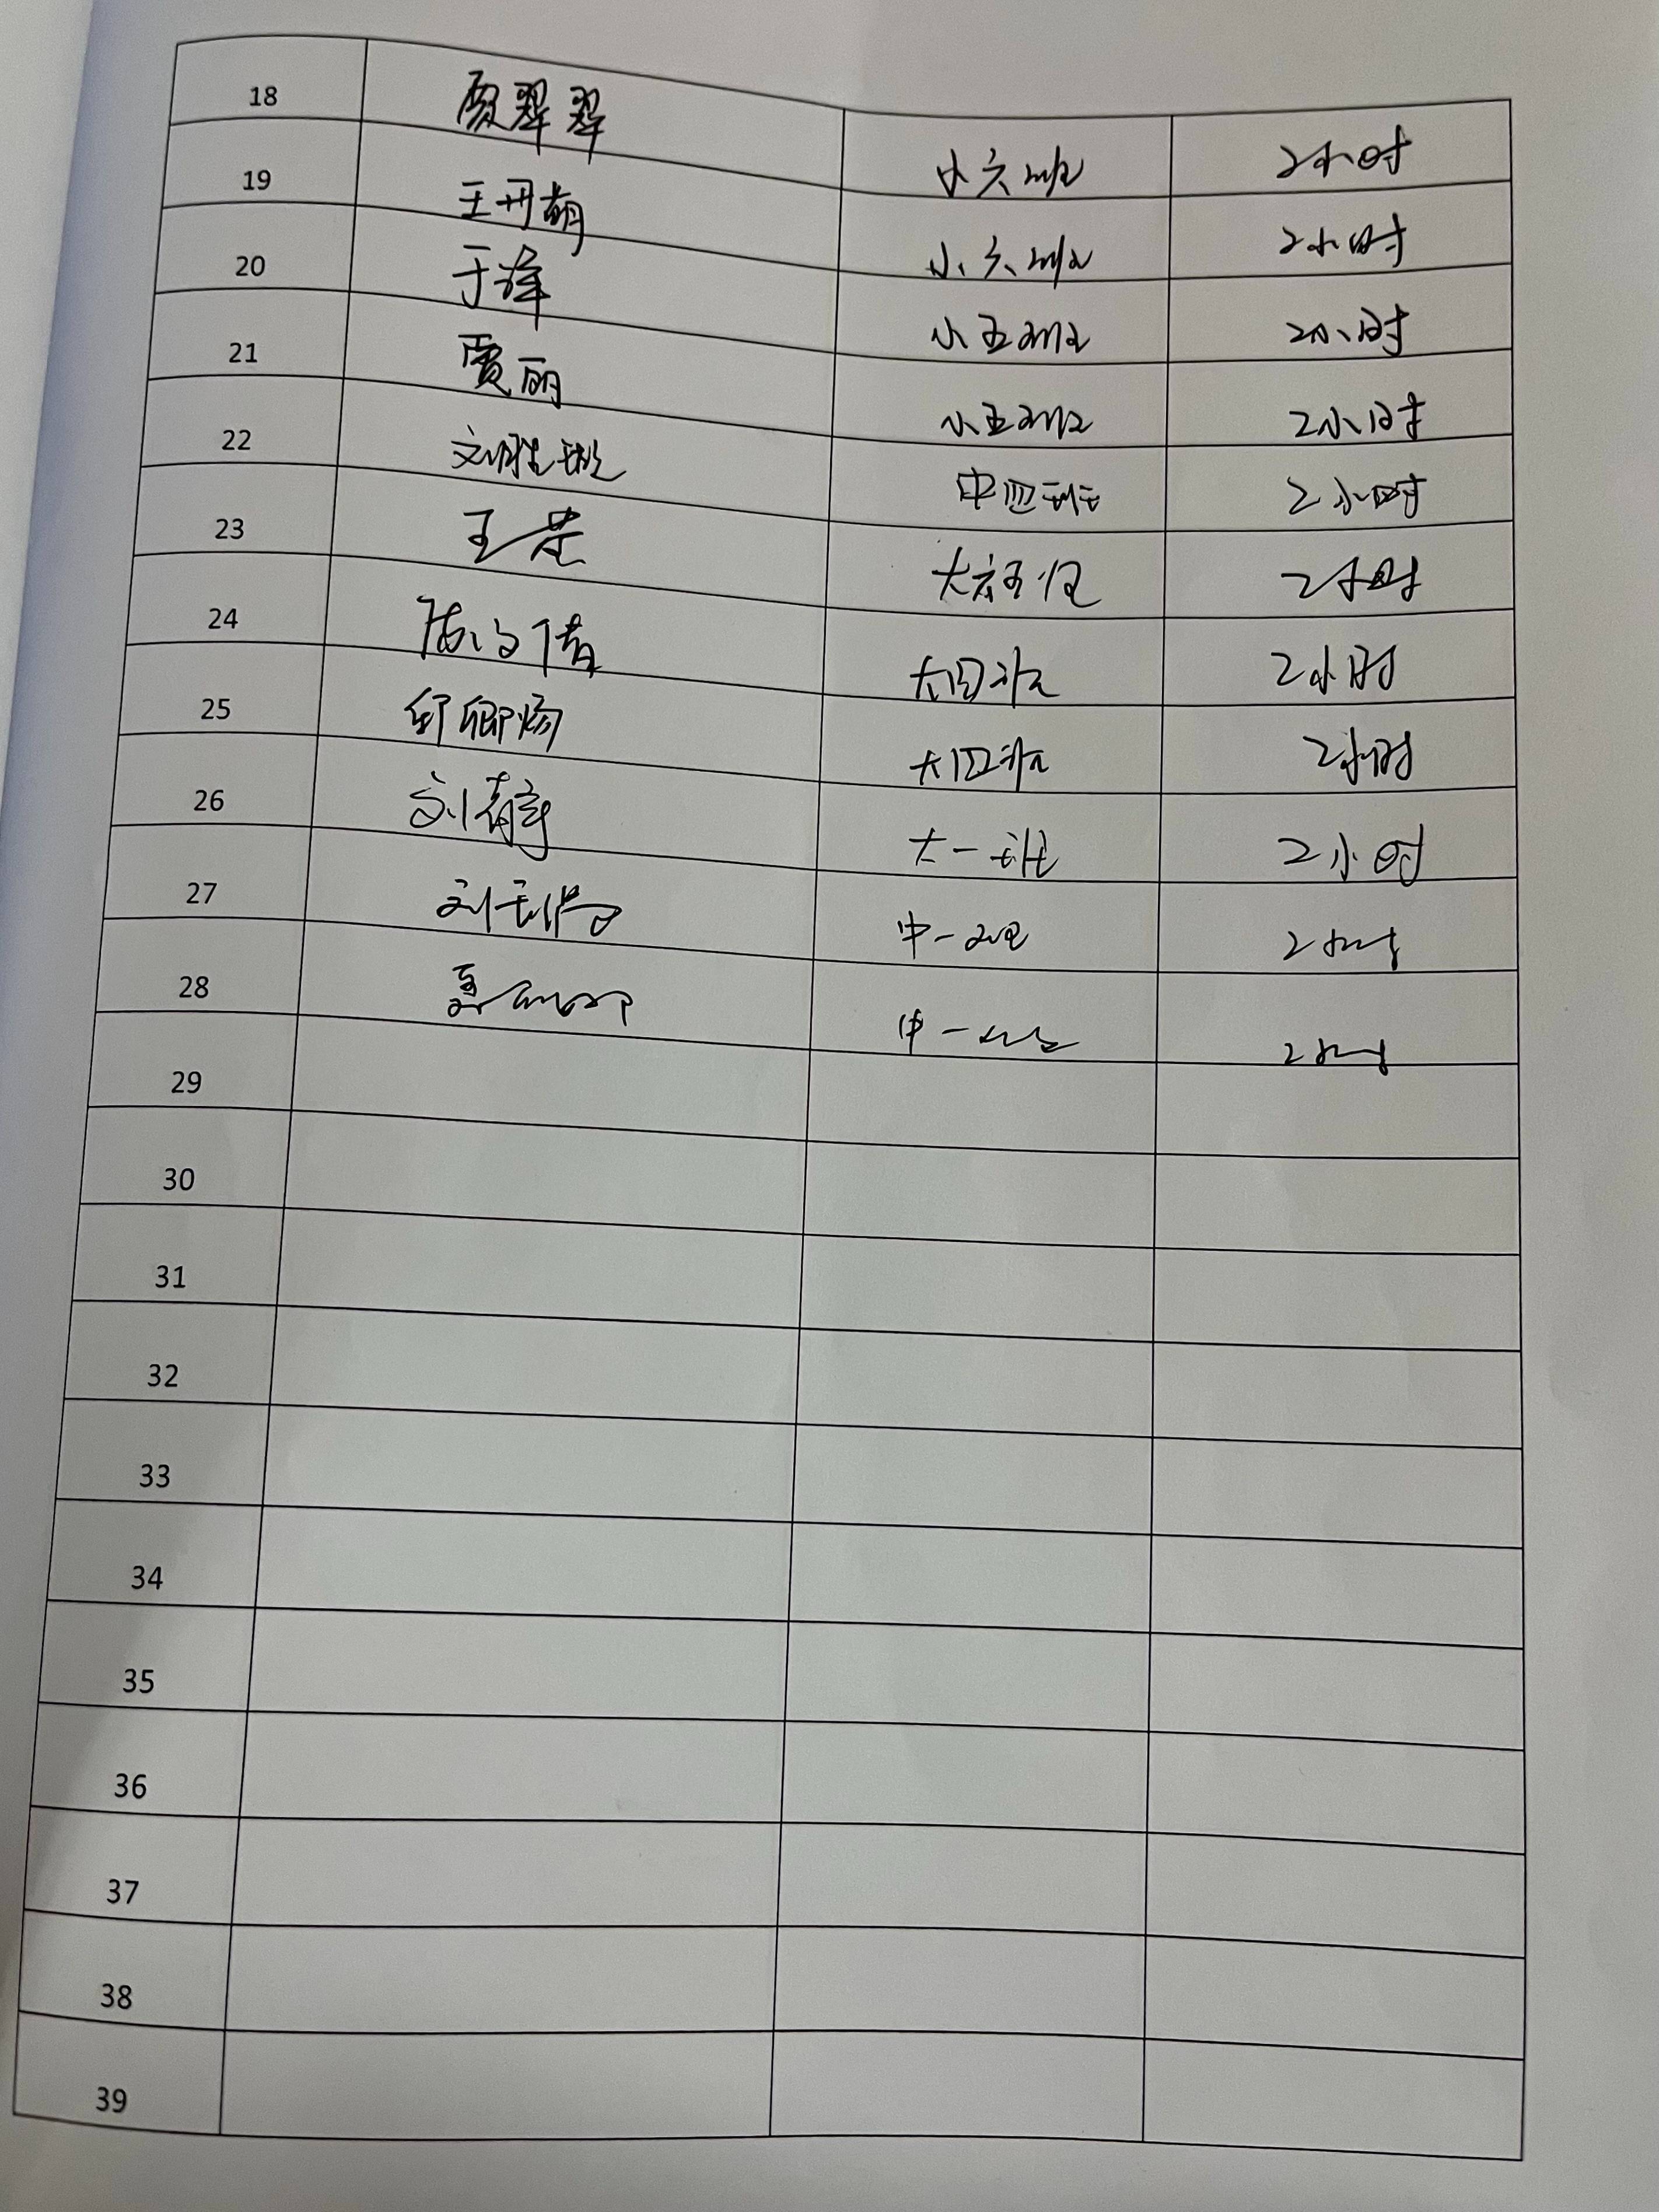 18 贾翠翠 小六班 2小时
19 王丹萌 小六班 2小时
20 于泽 小五班 2小时
21 贾丽 小五班 2小时
22 刘胜班 中四班 2小时
23 王芸 大班 2小时
24 倩 大四班 2小时
25 邹卿炀 大四班 2小时
26 刘静 大一班 2小时
27 刘 中一班 2小时
28 中一班 2小时
29
30
31
32
33
34
35
36
37
38
39